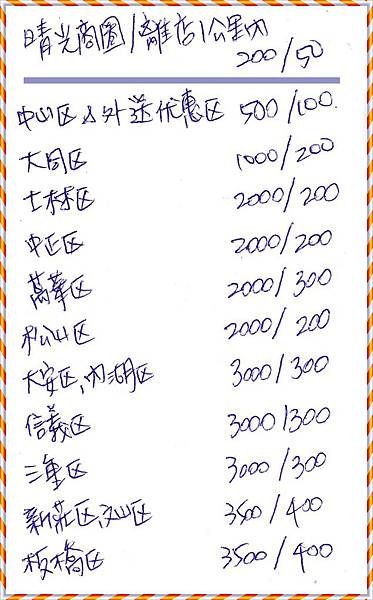 晴光商圈/離店1公里內
200/50
中山区&外送优惠区 500/100.
大同区 1000/200
士林区 2000/200
中正区 2000/200
萬華区 2000/300
松山区 2000/200
大安区,內湖区 3000/300
信義区 3000/300
三重区 3000/300
新莊区,文山区 3500/400
板橋区 3500/400